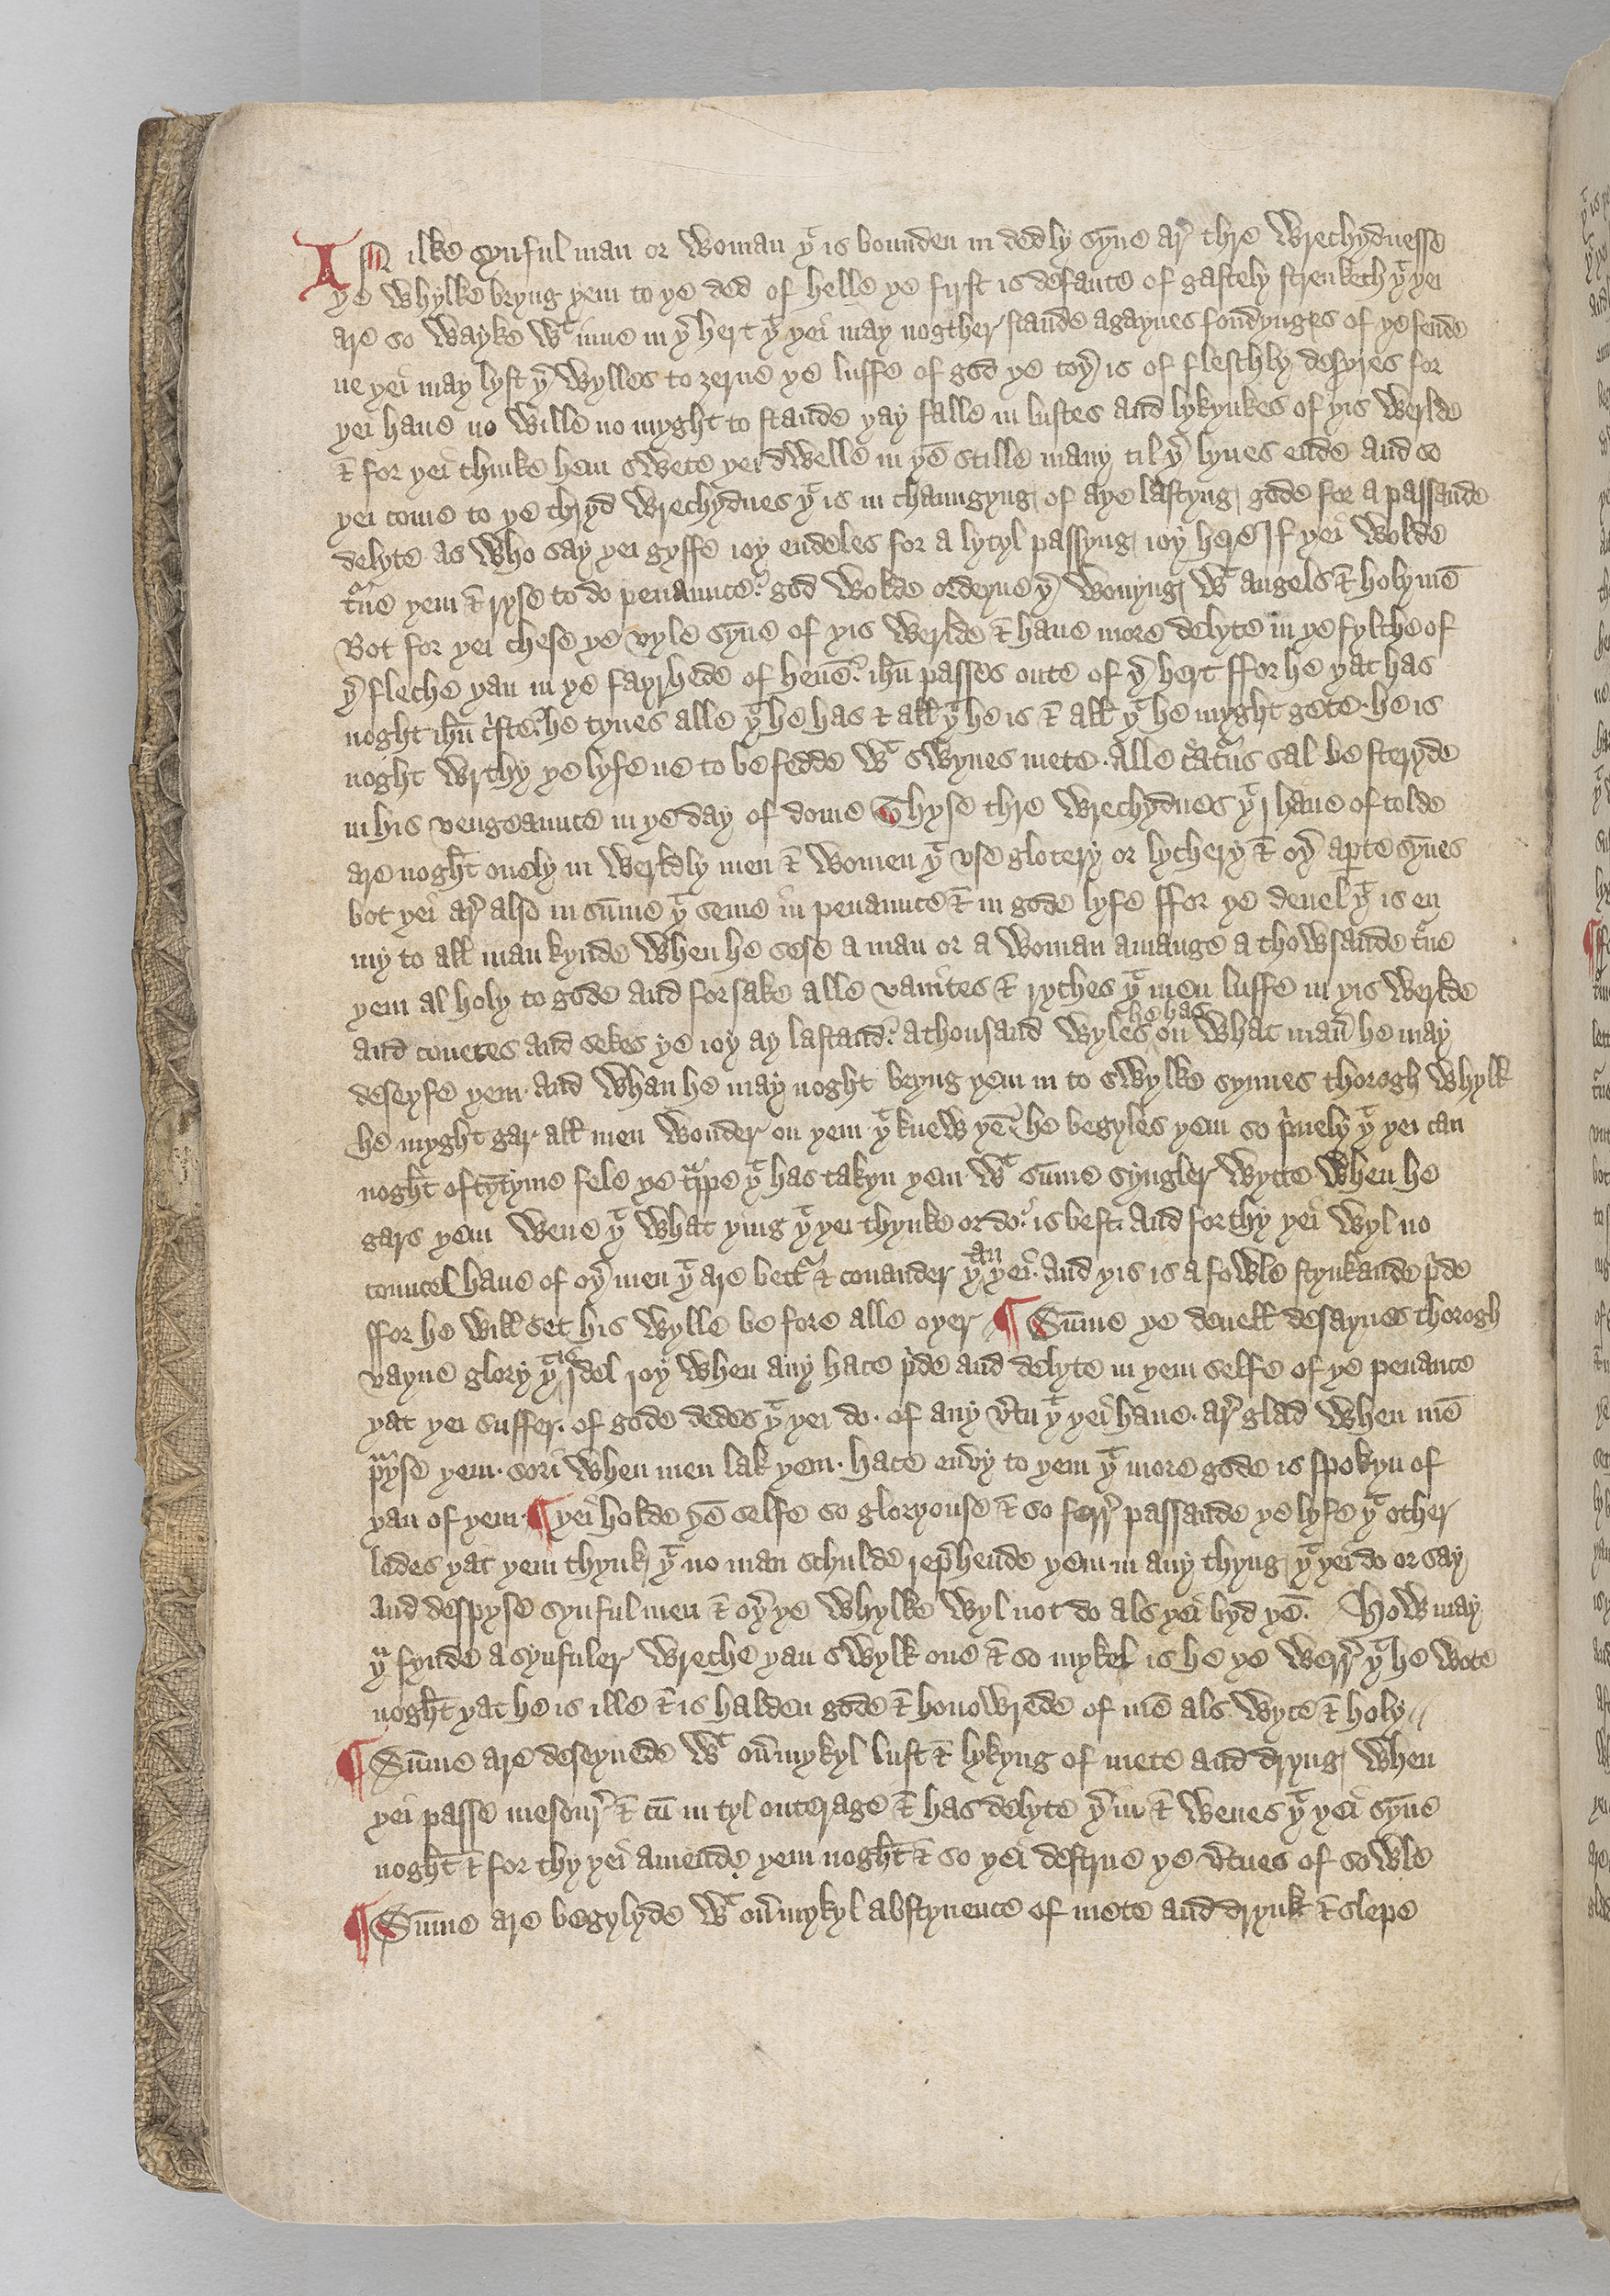 IN ilke synful man or woman yͭ is bounden in dedly syn̄e ar̛ thre wrechydnesse
ye whylke bryng yem to ye ded of helle ye first is defaute of gastely strenketh yͭ yei
are so wayke wͭ inne in yͬ hert yͭ yei may nogther stande agaynes fondynges of ye fende
ne yei may lyft yͬ wylles to zerne ye luffe of god ye toyͬ is of fleschly desyres for
yei haue no wille no myght to stande yay falle in lustes and lykynkes of yis werlde
⁊ for yei thinke hem swete yei dwelle in yē stille many til yͬ lyues ende and so
yei come to ye thryd wrechydnes yͭ is in chaungyng of aye lastyng gode for a passande
delyte as who say yei gyffe ioy endeles for a lytyl passyng ioy here If yei wolde
tᵘne yem ⁊ ryse to do penaunce. god wolde ordeyne yͬ wonyng wͭ angels ⁊ holy mē
Bot for yei chese ye vyle syn̄e of yis werlde ⁊ haue more delyte in ye fylthe of
yͬ fleche yan in ye fayrhede of heuē. ihū passes oute of yͬ hert ffor he yat has
noght ihū cͥste. he tynes alle yͭ he has ⁊ all yͭ he is ⁊ all yͭ he myght gete. he is
noght wrthy ye lyfe ne to be fedde wͭ swynes mete. Alle cͤatᵘs sal be steryde
in his vengeaunce in ye day of dome Thyse thre wrechydnes yͭ I haue of tolde
are noght onely in werldly men ⁊ women yͭ vse glotery or lychery ⁊ oyͬ aꝑte syn̄es
bot yei ar̛ also in sūme yͭ seme in penaunce ⁊ in gode lyfe ffor ye deuel yͭ is en
my to all mankynde when he sese a man or a woman amange a thowsande tᵘne
yem al holy to gode and forsake alle vanites ⁊ ryches yͭ men luffe in yis werlde
and couetes and sekes ye ioy ay lastand. a thousand wyles he has on what man̄ he may
deseyfe yem. And whan he may noght bryng yem in to swylke synnes thorogh whylk
he myght gar all men wonder on yem yͭ knew yē. he begyles yem so pͥuely yͭ yei can
noght oftȳtyme fele ye tᵃppe yͭ has takyn yem. wͭ sūme syngler wytte when he
gars yem wene yͭ what ying yͭ yei thynke or do. is best. And forthy yei wyl no
councel haue of oyͬ men yͭ are bettͬ ⁊ conander yan yei. And yis is a fowle stynkande pͥde
ffor he will set his wylle be fore alle oyer ¶ Sūme ye deuell desayues thorogh
vayne glory yͭ is ydel ioy when any hace pͥde and delyte in yem selfe of ye penance
yat yei suffer. of gode dedes yͭ yei do. of any v̛tu yͭ yei haue. ar̛ glad when mē
pᵃyse yem. sori when men lak yem. hace envy to yem yͭ more gode is spokyn of
yan of yem. ¶ yei holde yē selfe so gloryouse ⁊ so ferr̛ passande ye lyfe yͭ other
ledes yat yem thynk yͭ no man schulde rep̛hende yem in any thyng yͭ yei do or say
and despyse synful men ⁊ oyͬ ye whylke wyl not do als yei byd yē. How may
yᵘ fynde a synfuler wreche yan swylk one ⁊ so mykel is he ye werr̛ yͭ he wote
noght yat he is ille ⁊ is halden gode ⁊ honowrede of mē als wyce ⁊ holy //
¶ Sūme are deseyuede wͭ oưmykyl lust ⁊ lykyng of mete and dryng when
yei passe mesour̛ ⁊ cū in tyl outerage ⁊ has delyte yͬ in ⁊ wenes yͭ yei syn̄e
noght ⁊ for thy yei amende yem noght ⁊ so yei destrue ye v̛tues of sowle
¶ Sūme are begylyde wͭ oưmykyl abstynence of mete and drynk ⁊ slepe